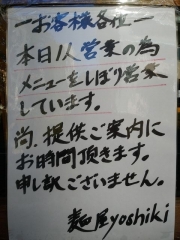 ーお客様各位ー
本日1人営業の為
メニューをしぼり営業
しています。
尚、提供ご案内に
お時間頂きます。
申し訳ございません。
麺屋yoshiki